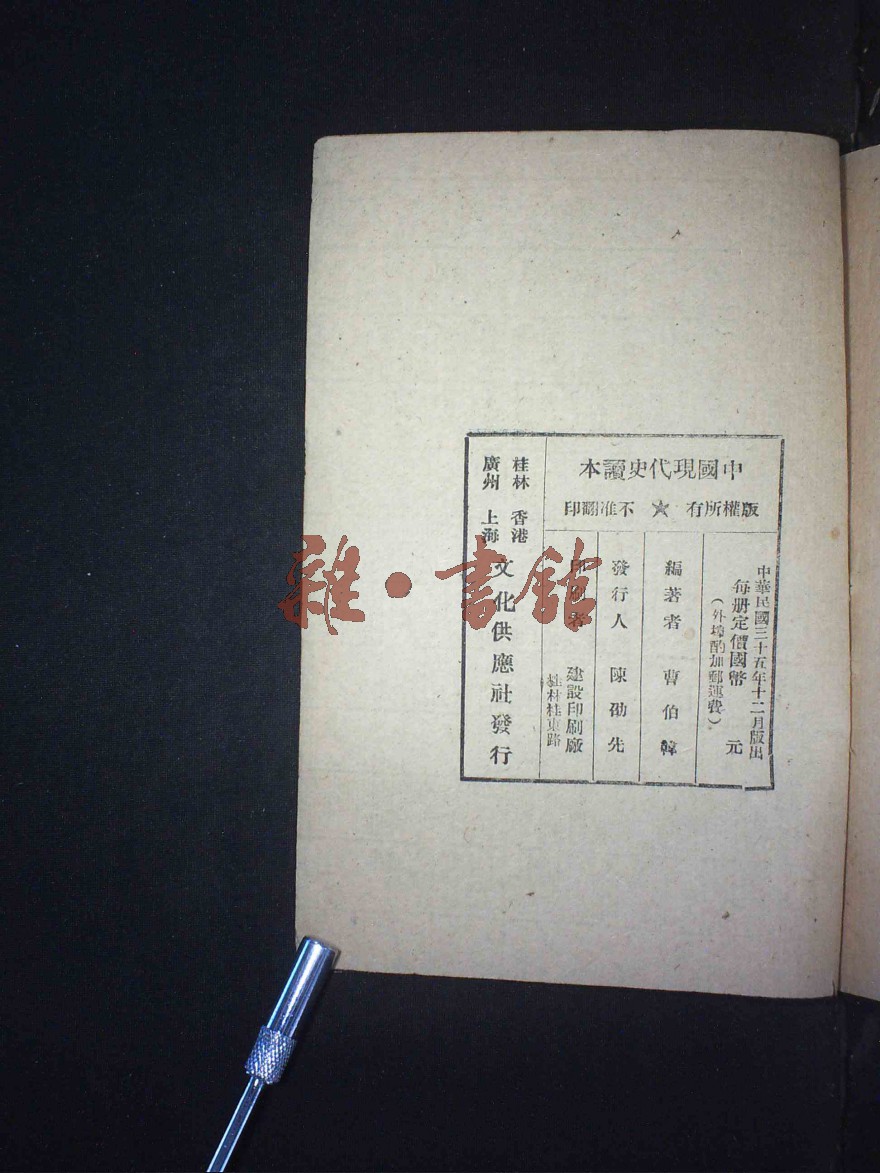 中國現代史讀本
版權所有 ★ 不准翻印
中華民國三十五年十二月版出
每册定價國幣 元
（外埠酌加郵運費）
編著者 曹伯韓
發行人 陳劭先
印刷者 建設印刷廠
桂林桂東路
桂林 香港
廣州 上海
文化供應社發行
雜·書館